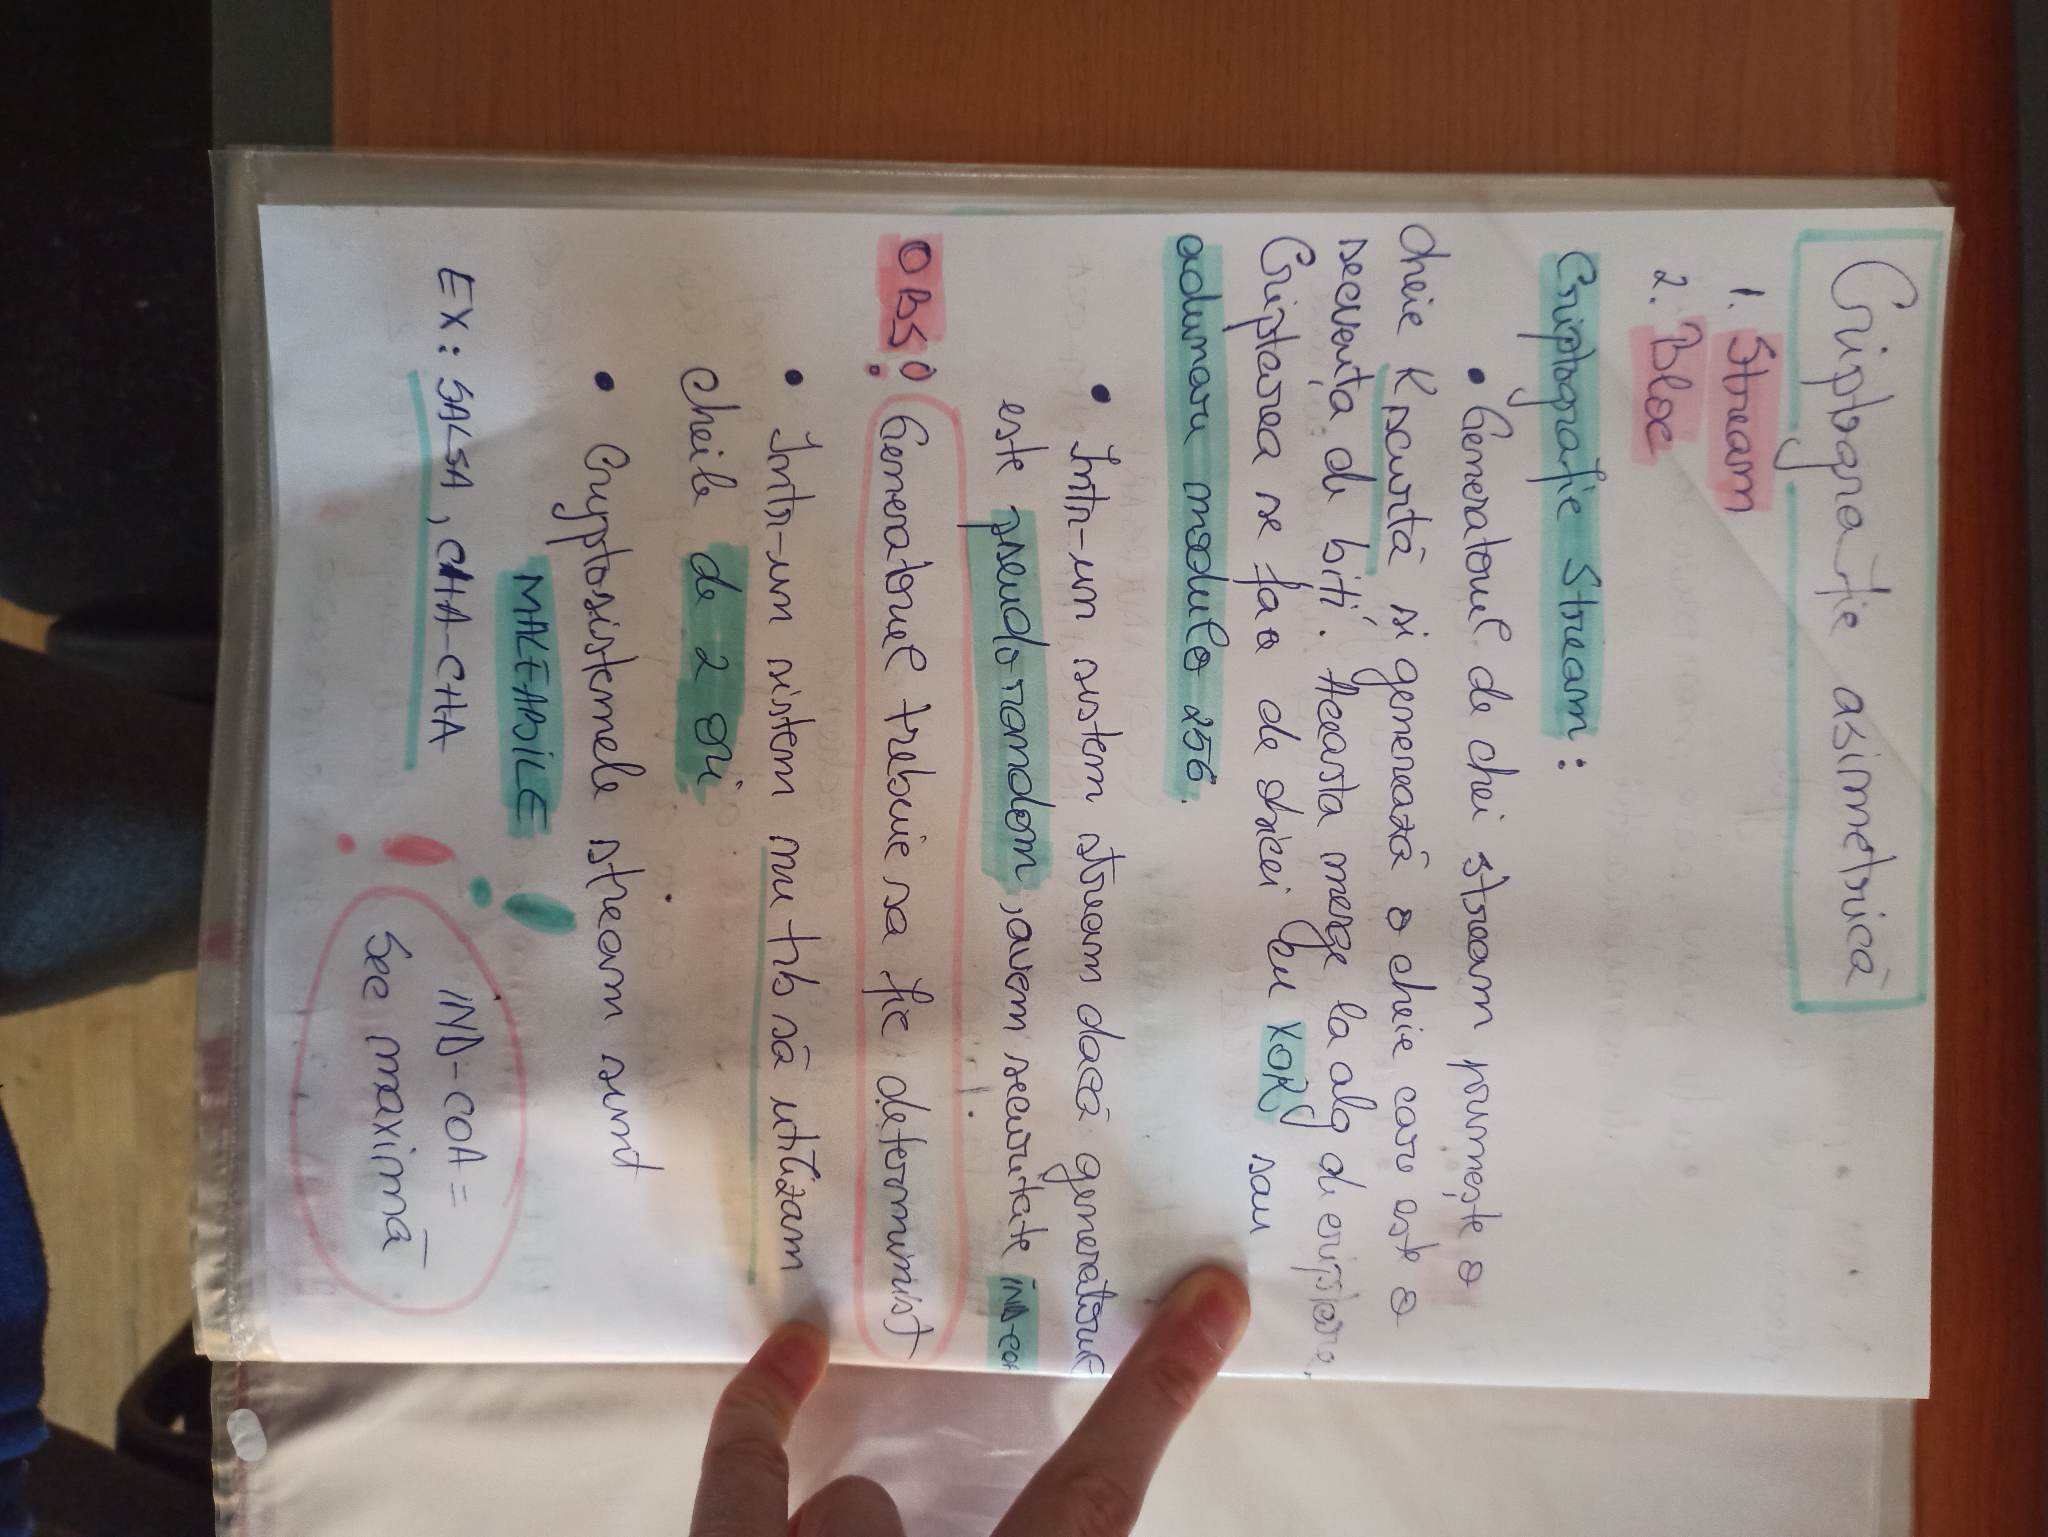 Criptografie asimetrică
1. Stream
2. Bloc
Criptografie Stream:
• Generatorul de chei stream primește o
cheie K scurtă si generează o cheie care este o
secvență de biti. Aceasta merge la alg de criptare.
Criptarea se face de obicei cu XOR sau
adunare modulo 256.
• Intr-un sistem stream dacă generatorul
este pseudorandom, avem securitate IND-COA
OBS! Generatorul trebuie sa fie determinist
• Intr-un sistem nu trb să utilizam
cheile de 2 ori
• Cryptosistemele stream sunt
MALEABILE!
EX: SALSA, CHA-CHA
! IND-COA =
Sec maximă